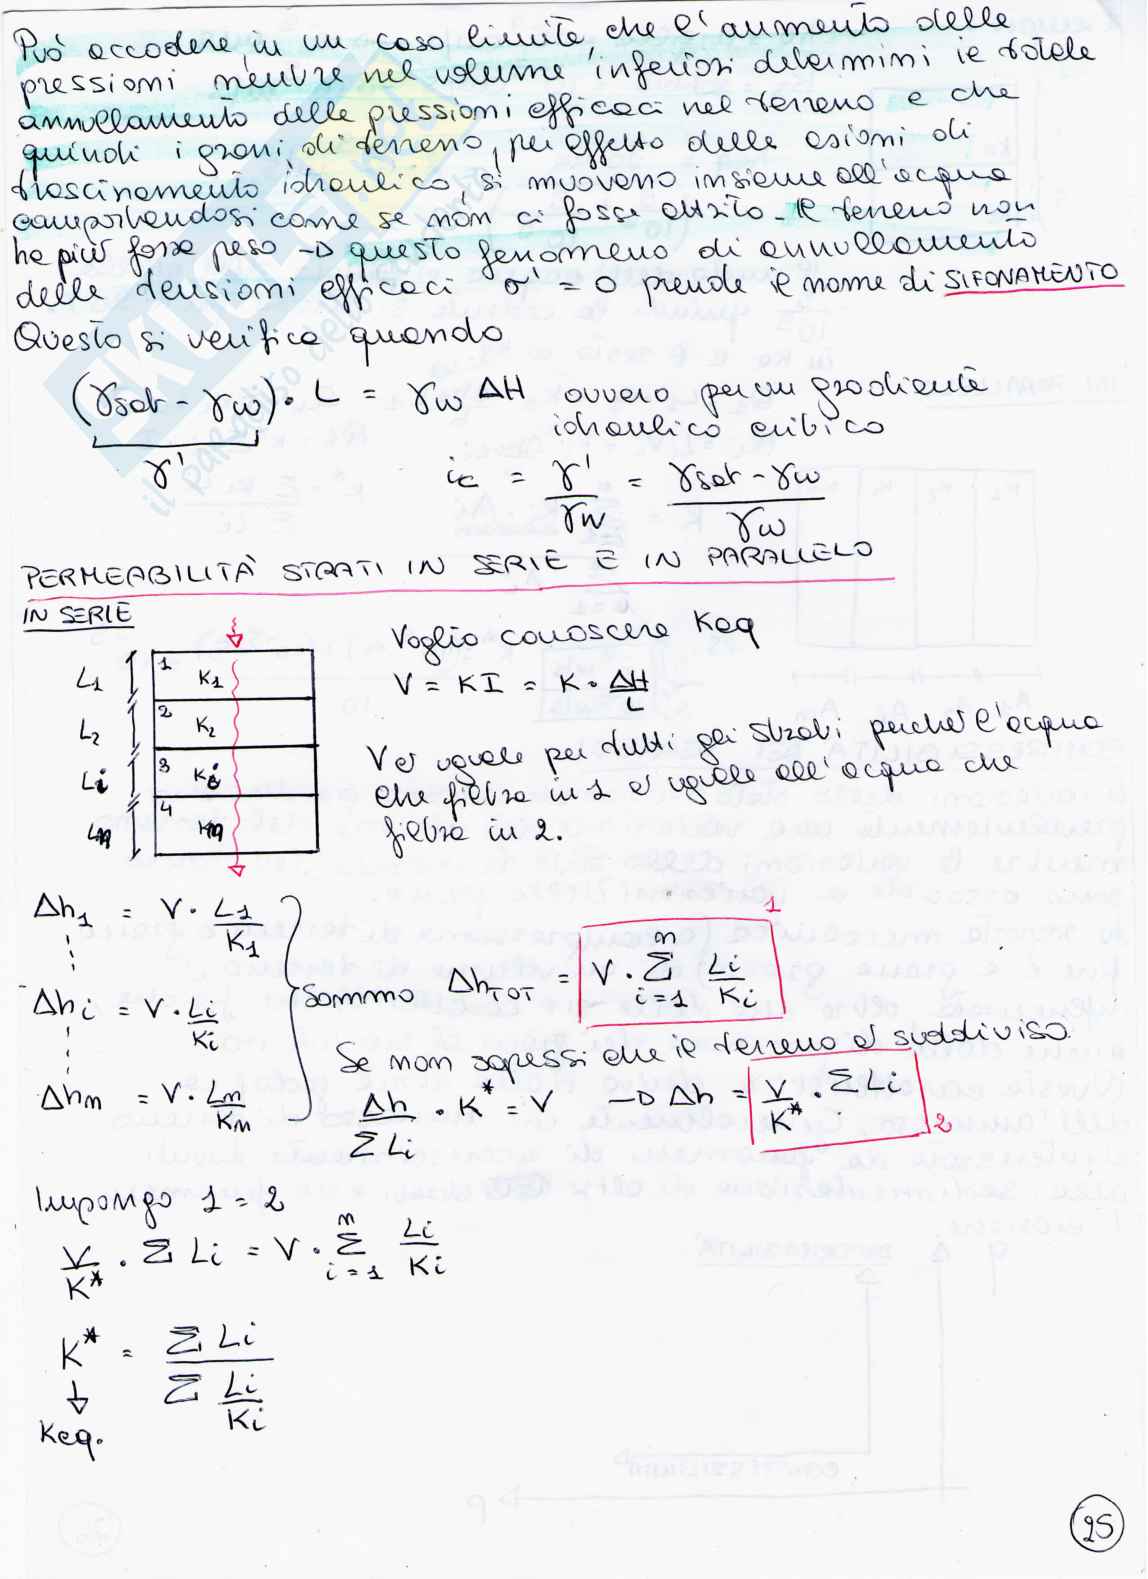 Può accadere, in un caso limite, che l'aumento delle
pressioni neutre nel volume inferiori determini il totale
annullamento delle pressioni efficaci nel terreno e che
quindi i grani di terreno, per effetto delle azioni di
trascinamento idraulico, si muovano insieme all'acqua
comportandosi come se non ci fosse attrito - Il terreno non
ha più forza peso → questo fenomeno di annullamento
delle tensioni efficaci σ' = 0 prende il nome di SIFONAMENTO
Questo si verifica quando
(γsat - γw) · L = γw ΔH ovvero per un gradiente
idraulico critico
γ'
ic = γ'/γw = (γsat - γw)/γw
PERMEABILITÀ STRATI IN SERIE E IN PARALLELO
IN SERIE
L1 1 K1
L2 2 K2
Li 3 Ki
Ln 4 Kn
Voglio conoscere Keq
V = KI = K · ΔH/L
V è uguale per tutti gli strati perché l'acqua
che filtra in 1 è uguale all'acqua che
filtra in 2.
Δh1 = V · L1/K1
Δhi = V · Li/Ki
Δhn = V · Ln/Kn
Sommo ΔhTOT = V · Σ i=1 n Li/Ki 1
Se non sapessi che il terreno è suddiviso
Δh/ΣLi · K* = V → Δh = V/K* · ΣLi 2
Impongo 1 = 2
V/K* · Σ Li = V · Σ i=1 n Li/Ki
K* = Σ Li / Σ Li/Ki
↓
Keq.
25
SKUOLA.net
il paradiso dello studente